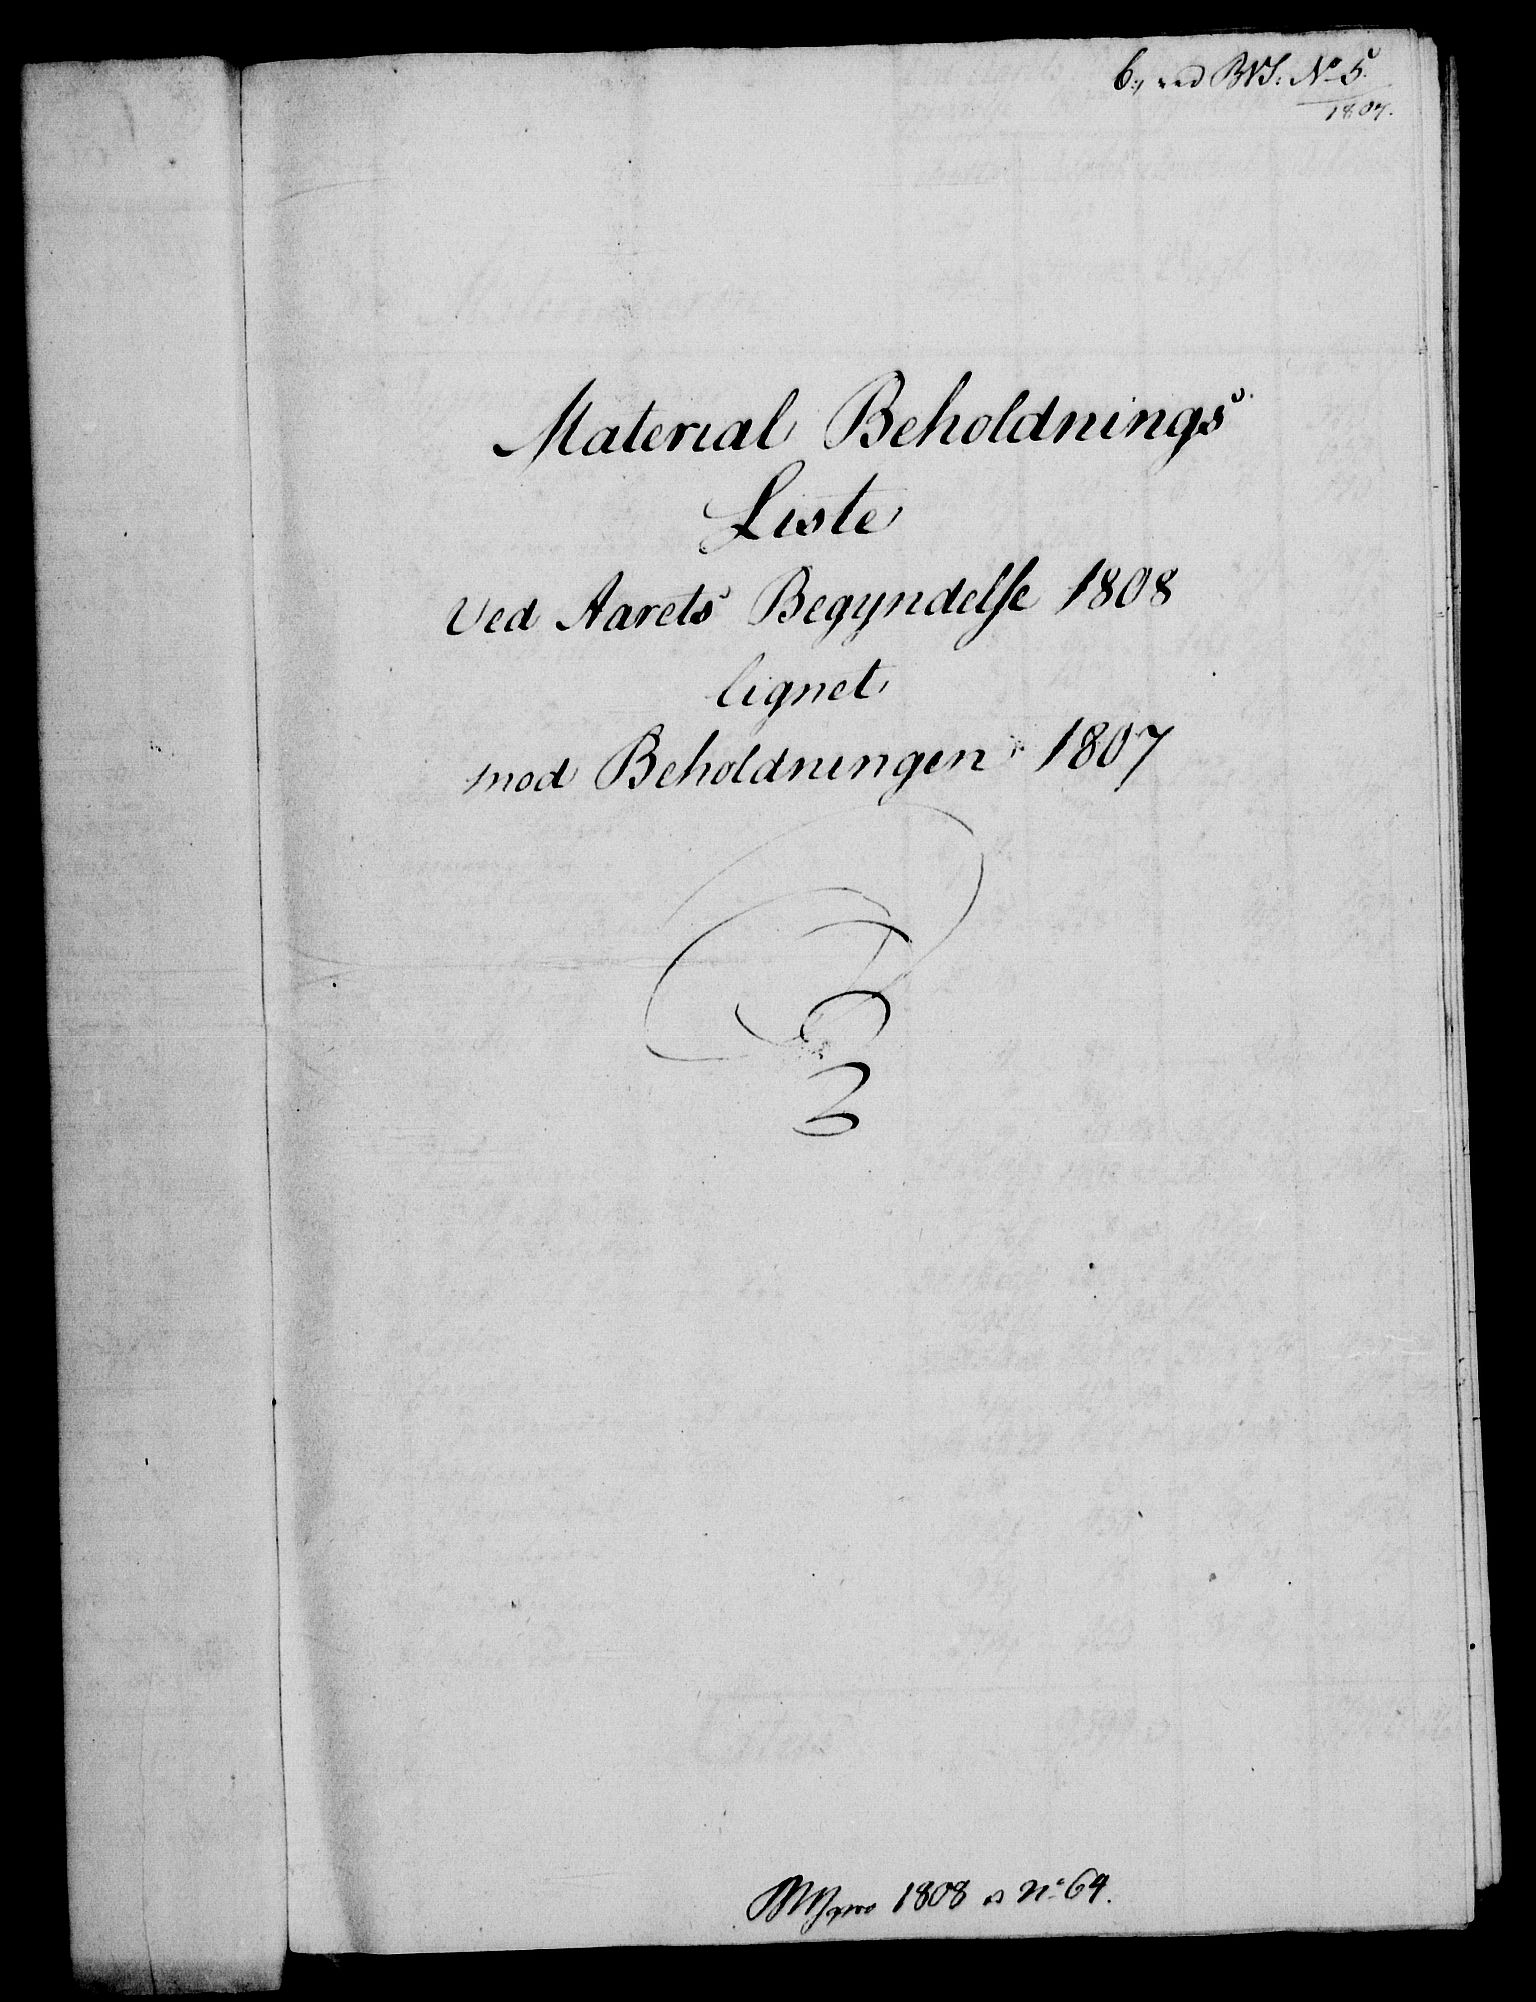 No 5.
1807.
Material Beholdnings
Liste
Ved Aarets Begyndelse 1808
lignet
mod Beholdningen 1807
1808 No 64.